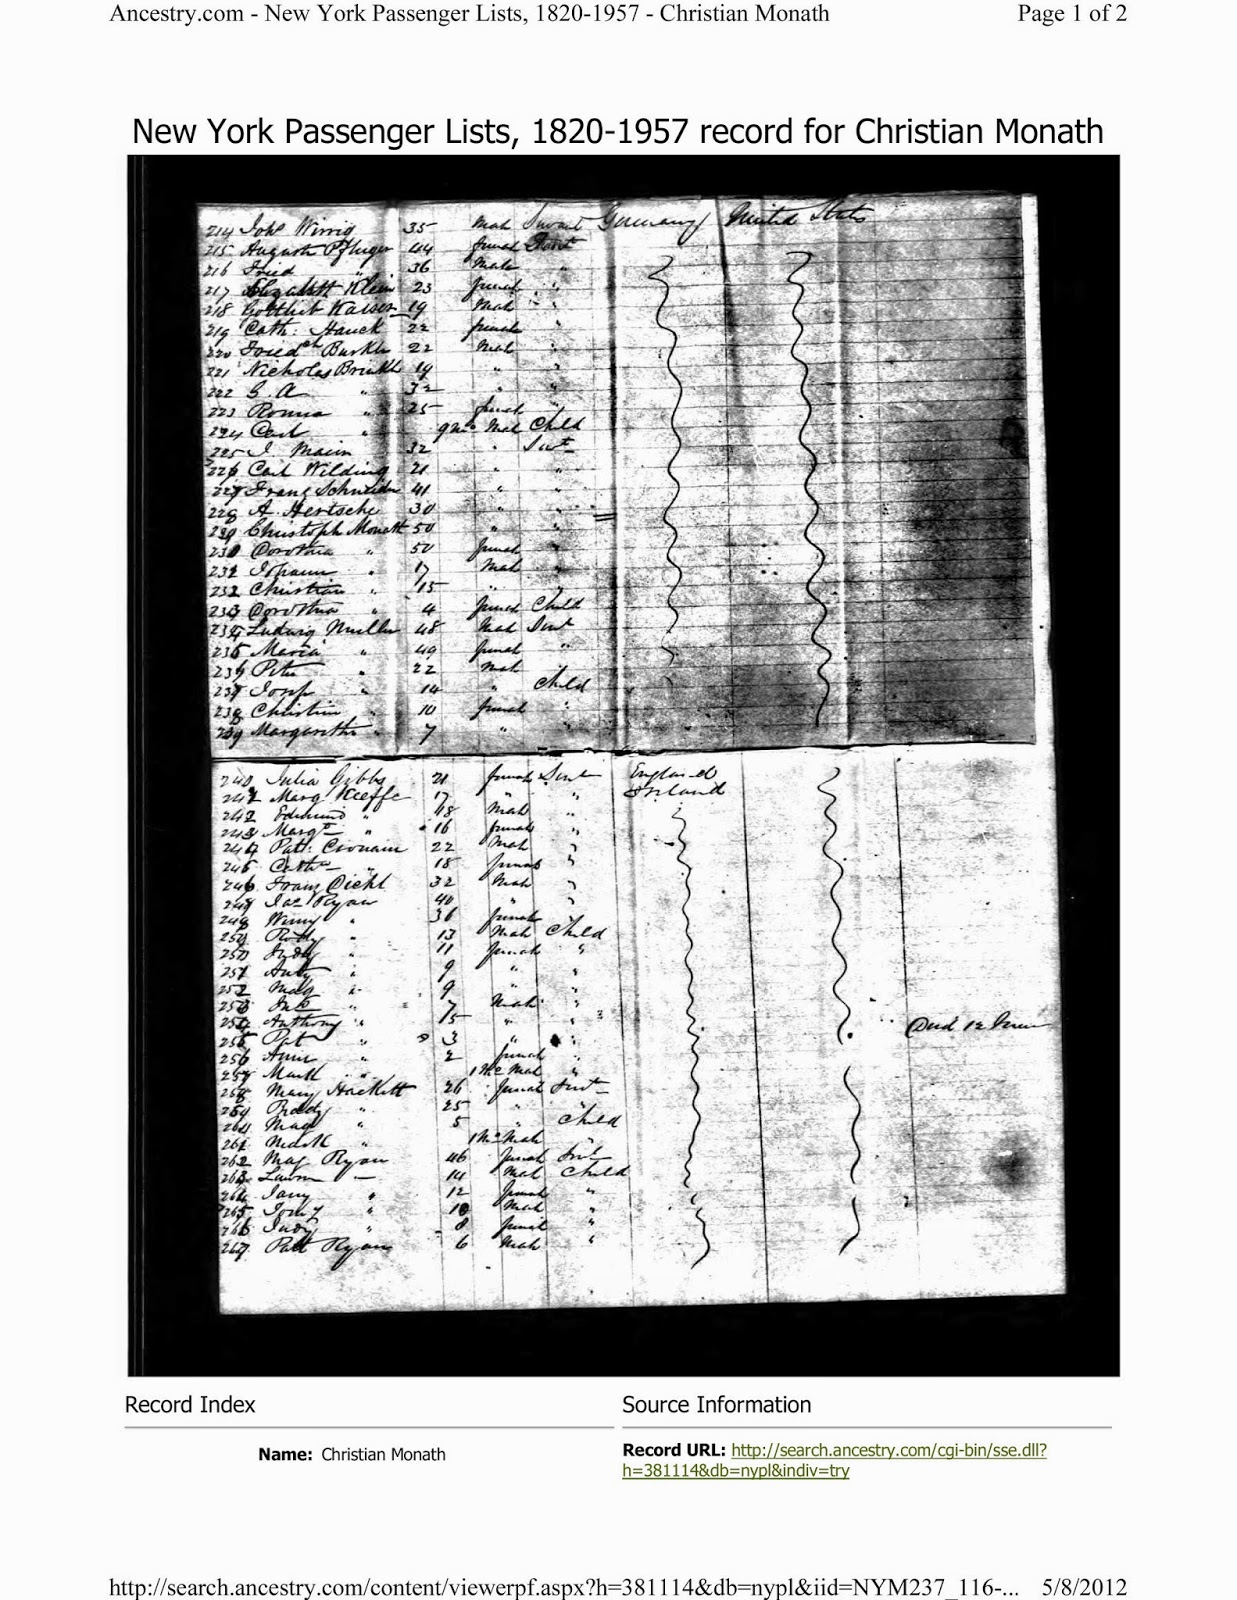 Ancestry.com - New York Passenger Lists, 1820-1957 - Christian Monath Page 1 of 2
New York Passenger Lists, 1820-1957 record for Christian Monath
214 Joh Wirrig 35 Mal Germany United Stats
215 August Pfluger 44 femal
216 Fried " 36 Male "
217 Elizabeth Klein 23 femal "
218 Gottlieb Kaiser 19 Mal "
219 Cath: Hauck 22 femal "
220 Friedch 22 Mal "
221 Nicholas 19 " "
222 G. A " 32 " "
223 " 25 femal "
224 Carl " 9 Mo Mal Child
225 J 32 "
226 Carl Wilding 21 " "
Franz Schneider 41 " "
A. Hertsche 30 " "
Christoph Monath 50 " "
Dorothea " 50 femal "
Johann " 17 Mal "
232 Christian " 15 " "
233 Dorothea " 4 femal Child
234 Ludwig Muller 48 Mal
235 Maria " 49 femal "
236 Peter " 22 Mal
237 Josep " 14 " Child
238 Christian " 10 femal "
239 Margaretha " 7 " "
240 Julia Gibbs 21 femal England
241 Marg Kieffe 17 " " Ireland
242 Edmund " 18 Mal "
243 Margt " 16 femal "
244 Patt: 22 Mal "
245 Cath " 18 femal "
246 Franz Diehl 32 Mal "
Jas Ryan 40 " "
Winny " 36 femal "
" 13 Mal Child
250 Judy " 11 femal "
251 " 9 " "
252 Mag " 9 " "
253 " 7 Mal "
254 Anthony " " " Died 12
255 Pat " 3 " "
256 Ann " 2 femal "
257 Mark " Mal "
258 Mary Hackett 26 femal
" 25 "
Mag " 5 " Child
261 " Mal
262 Mag Ryan 46 femal
263 14 Mal Child
264 " 12 femal "
265 " 10 Mal "
266 Judy " 8 femal "
267 Patt Ryan 6 Mal "
Record Index
Source Information
Name: Christian Monath
Record URL: http://search.ancestry.com/cgi-bin/sse.dll?
h=381114&db=nypl&indiv=try
http://search.ancestry.com/content/viewerpf.aspx?h=381114&db=nypl&iid=NYM237_116-... 5/8/2012